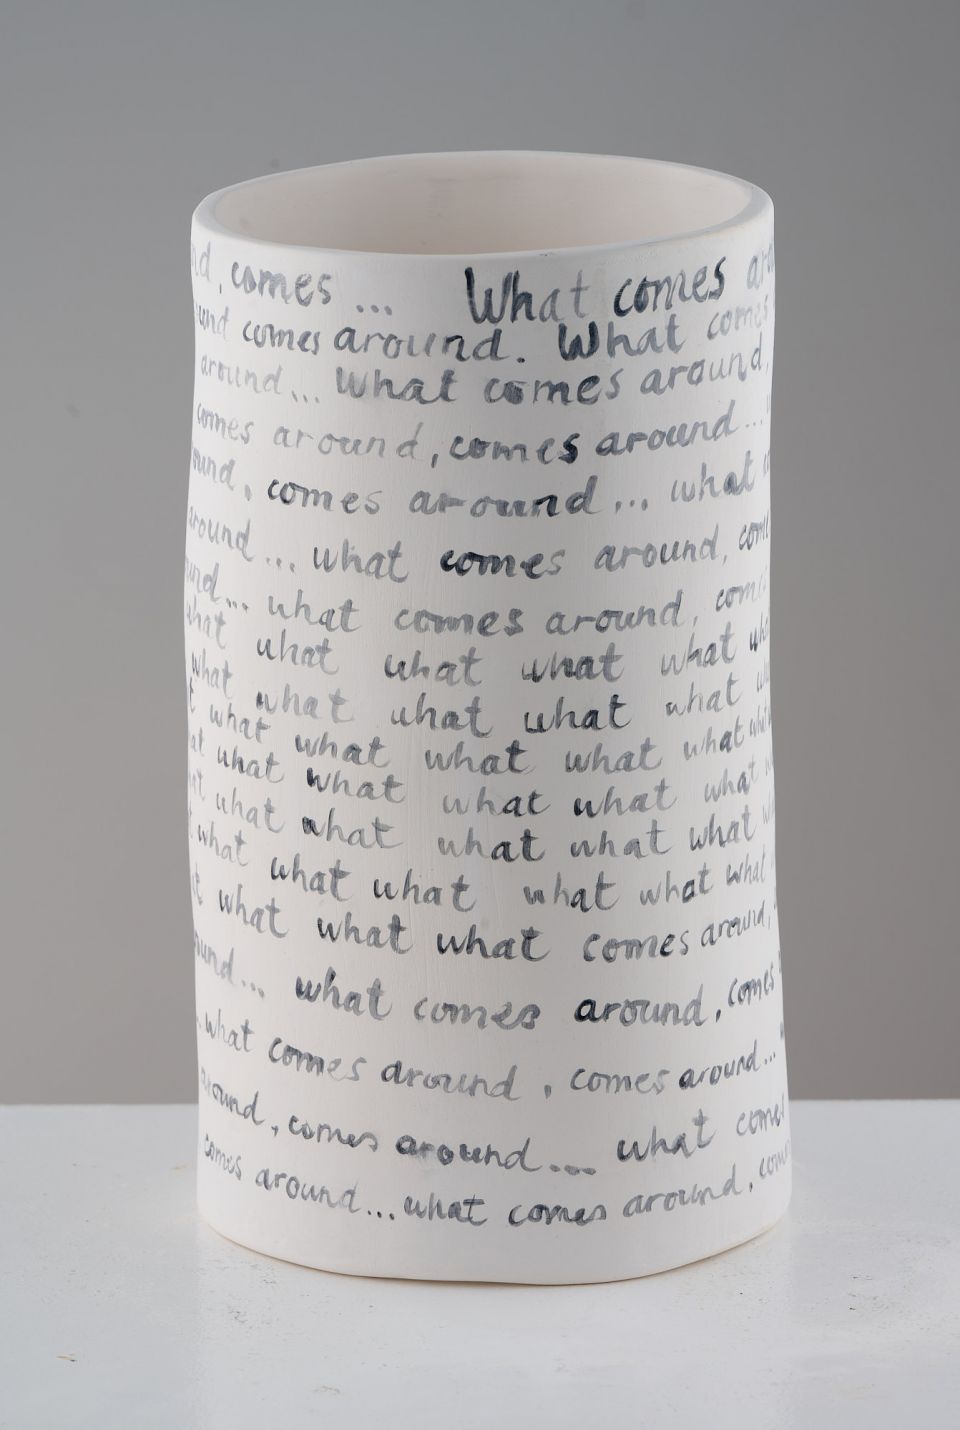 comes ... What comes
comes around. What comes
around... What comes around,
comes around, comes around...
comes around... what
around... what comes around,
what comes around,
what what what what what
what what what what what
what what what what what
what what what what what
what what what what what
what what what what what what
what what what comes around,
what comes around, comes
what comes around, comes around...
comes around... what comes
comes around... what comes around,